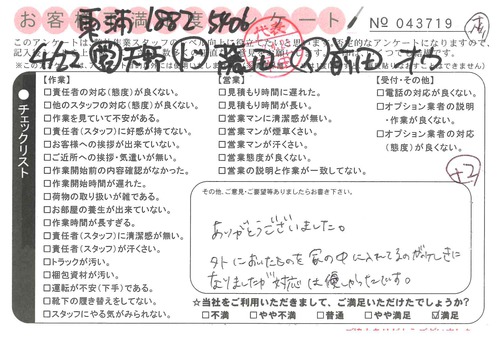 お客様満足度アンケート
№ 043719
チェックリスト
【作業】
□責任者の対応(態度)が良くない。
□他のスタッフの対応(態度)が良くない。
□作業を見ていて不安がある。
□責任者(スタッフ)に好感が持てない。
□お客様への挨拶が出来ていない。
□ご近所への挨拶・気遣いが無い。
□作業開始前の内容確認がなかった。
□作業開始時間が遅れた。
□荷物の取り扱いが雑である。
□お部屋の養生が出来ていない。
□作業時間が長すぎる。
□責任者(スタッフ)に清潔感が無い。
□責任者(スタッフ)が汗くさい。
□トラックが汚い。
□梱包資材が汚い。
□運転が不安(下手)である。
□靴下の履き替えをしてない。
□スタッフにやる気がみられない。
【営業】
□見積もり時間に遅れた。
□見積もり時間が長い。
□営業マンに清潔感が無い。
□営業マンが煙草くさい。
□営業マンが汗くさい。
□営業態度が良くない。
□営業の説明と作業が一致してない。
【受付・その他】
□電話の対応が良くない。
□オプション業者の説明
・作業が良くない。
□オプション業者の対応
(態度)が良くない。
+2
その他、ご意見・ご要望等ありましたらお書き下さい。
ありがとうございました。
外においたものを家の中に入れてるのが気になりましたが対応は優しかったです。
☆当社をご利用いただきまして、ご満足いただけたでしょうか?
□不満 □やや不満 □普通 □やや満足 ☑満足